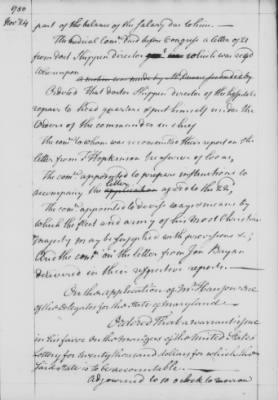 1780
Nov. 24
part of the balance of the salary due to him.
The medical Com.ee laid before Congress a letter of 21
from doct Shippen director which was read
Whereupon
A motion was made by
Ordered That doctor Shippen director of the hospitals
repair to head quarters & put himself under the
Orders of the commander in chief
The com.ee to whom was recommitted their report on the
letter from F Hopkinson treasurer of loans,
The com.ee appointed to prepare instructions to
accompany the letter agreed to the 22,
The com.ee appointed to devise ways & means by
which the fleet and army of his most Christian
majesty may be supplied with provisions &c;
And the com.ee on the letter from Jon Bryan
delivered in their respective reports.
On the application of Mr. Thompson one
of the delegates for the state of Maryland
Ordered That a warrant issue
in his favor on the managers of the United States
lottery for twenty thousand dollars for which the
said state is to be accountable.
Adjourned to 10 o Clock to morrow